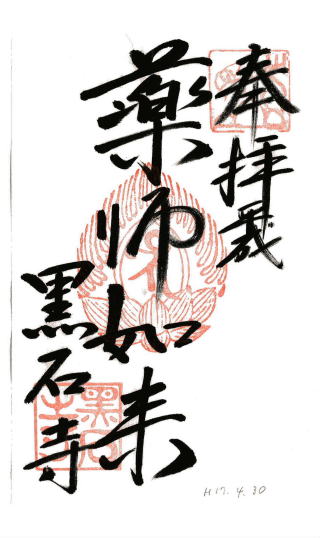 奉拝
薬師如来
黒石寺
H17.4.30